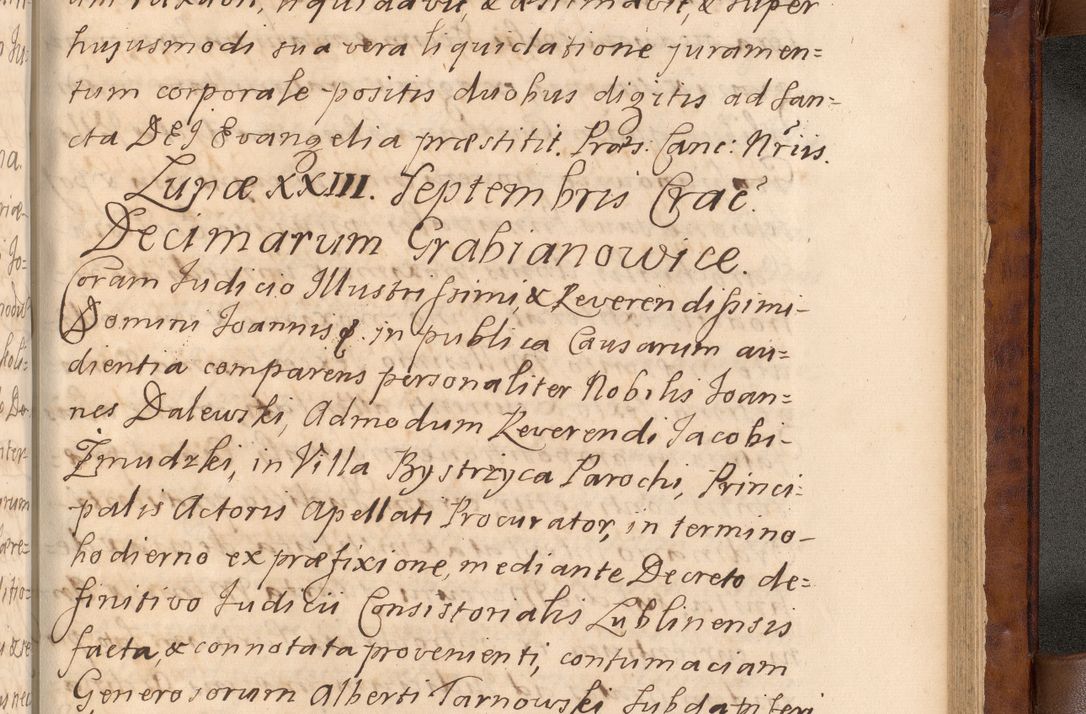 liquidavit, & æstimavit, & super
hujusmodi sua vera liquidatione juramen=
tum corporale positis duobus digitis ad San=
cta DEI Evangelia præstitit. Præs: Canc: Nriis.
Lunæ XXIII. Septembris Crac.
Decimarum Grabianowice.
Coram Judicio Illustrissimi, & Reverendissimi-
Domini Joannis &. in publica Causarum au=
dientia comparens personaliter Nobilis Joan=
nes Dalewski, Admodum Reverendi Jacobi-
Żmudzki, in Villa Bystrzyca Parochi, Princi-
palis Actoris Apellati Procurator, in termino-
hodierno ex præfixione, mediante Decreto de=
finitivo Judicii Consistorialis Lublinensis
facta, & connotata provenienti, contumaciam
Generosorum Alberti Tarnowski Subdapiferi